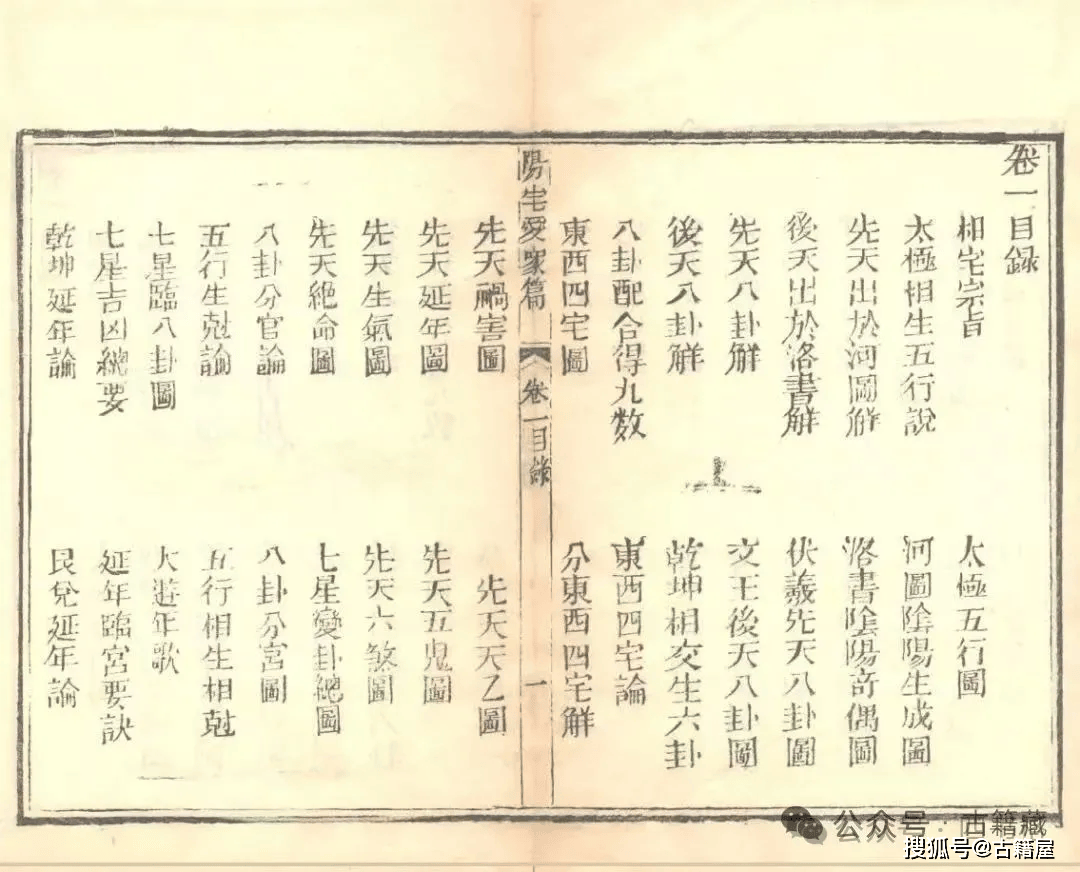 卷一目録
相宅宗旨 太極五行圖
太極相生五行說 河圖陰陽生成圖
先天出於河圖解 洛書陰陽奇偶圖
後天出於洛書解 伏羲先天八卦圖
先天八卦解 文王後天八卦圖
後天八卦解 乾坤相交生六卦
八卦配合得九数 東西四宅論
東西四宅圖 分東西四宅解
陽宅愛眾篇 卷一目錄 一
先天禍害圖 先天天乙圖
先天延年圖 先天五鬼圖
先天生氣圖 先天六煞圖
先天絶命圖 七星變卦總圖
八卦分官論 八卦分宮圖
五行生尅論 五行相生相尅
七星臨八卦圖 大遊年歌
七星吉凶總要 延年臨宮要訣
乾坤延年論 艮兌延年論
公众号：古籍藏
搜狐号@古籍屋